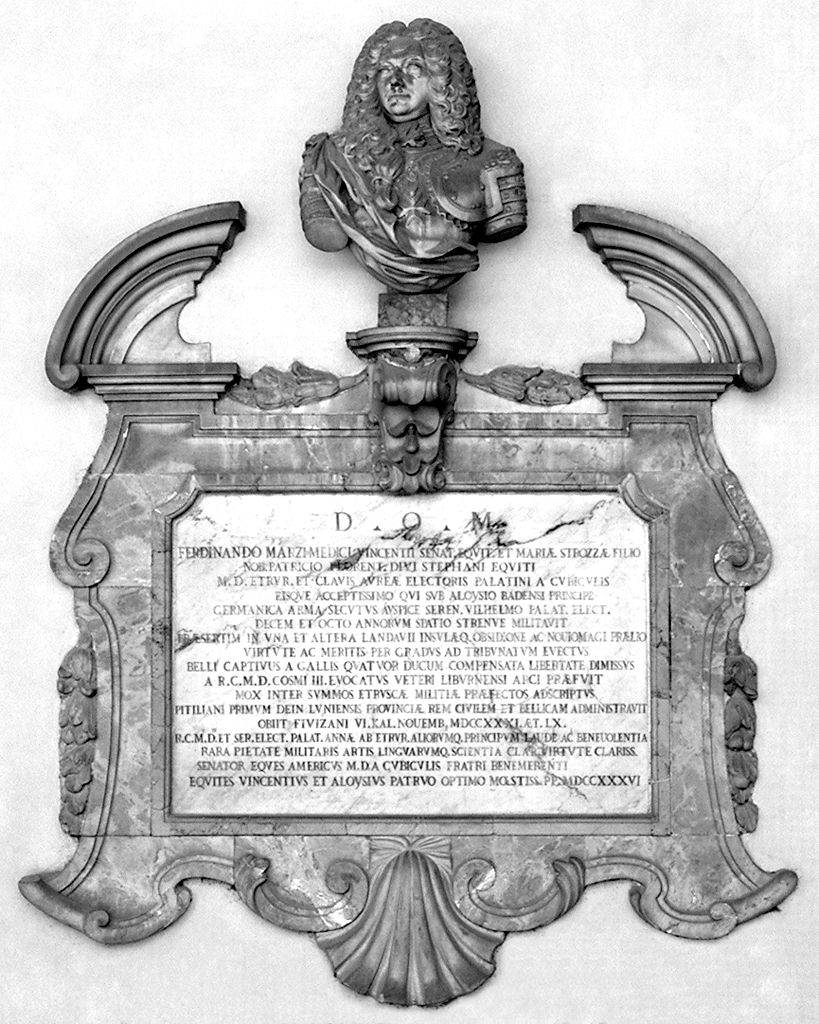 D. O. M
FERDINANDO MARZI-MEDICI, VINCENTII SENAT. EQVIT. ET MARIÆ STROZZÆ FILIO
NOB. PATRICIO FLORENT. DIVI STEPHANI EQVITI
M. D. ETRVR. ET CLAVIS AVREÆ ELECTORIS PALATINI A CVBICVLIS
EISQVE ACCEPTISSIMO QVI SVB ALOYSIO BADENSI PRINCIPE
GERMANICA ARMA SECVTVS AVSPICE SEREN. VILHELMO PALAT. ELECT.
DECEM ET OCTO ANNORVM SPATIO STRENVE MILITAVIT
PRÆSERTIM IN VNA ET ALTERA LANDAVII INSVLÆQ. OBSIDIONE AC NOVIOMAGI PRÆLIO
VIRTVTE AC MERITIS PER GRADVS AD TRIBVNATVM EVECTVS
BELLI CAPTIVVS A GALLIS QVATVOR DUCUM COMPENSATA LIBERTATE DIMISSVS
A R.C.M.D. COSMI III. EVOCATVS VETERI LIBVRNENSI ARCI PRÆFVIT
MOX INTER SVMMOS ETRVSCÆ MILITIÆ PRÆFECTOS ADSCRIPTVS
PITILIANI PRIMVM DEIN LVNIENSIS PROVINCIÆ REM CIVILEM ET BELLICAM ADMINISTRAVIT
OBIIT FIVIZANI VI. KAL. NOUEMB. MDCCXXXI. ÆT. LX.
R.C.M.D. ET SER. ELECT. PALAT. ANNÆ AB ETRVR. ALIORVMQ. PRINCIPVM LAUDE AC BENEUOLENTIA
RARA PIETATE MILITARIS ARTIS LINGVARVMQ. SCIENTIA CLAR. VIRTVTE CLARISS.
SENATOR EQVES AMERICVS M.D. A CVBICVLIS FRATRI BENEMERENTI
EQVITES VINCENTIVS ET ALOYSIVS PATRVO OPTIMO MŒSTISS. PP. MDCCXXXVI